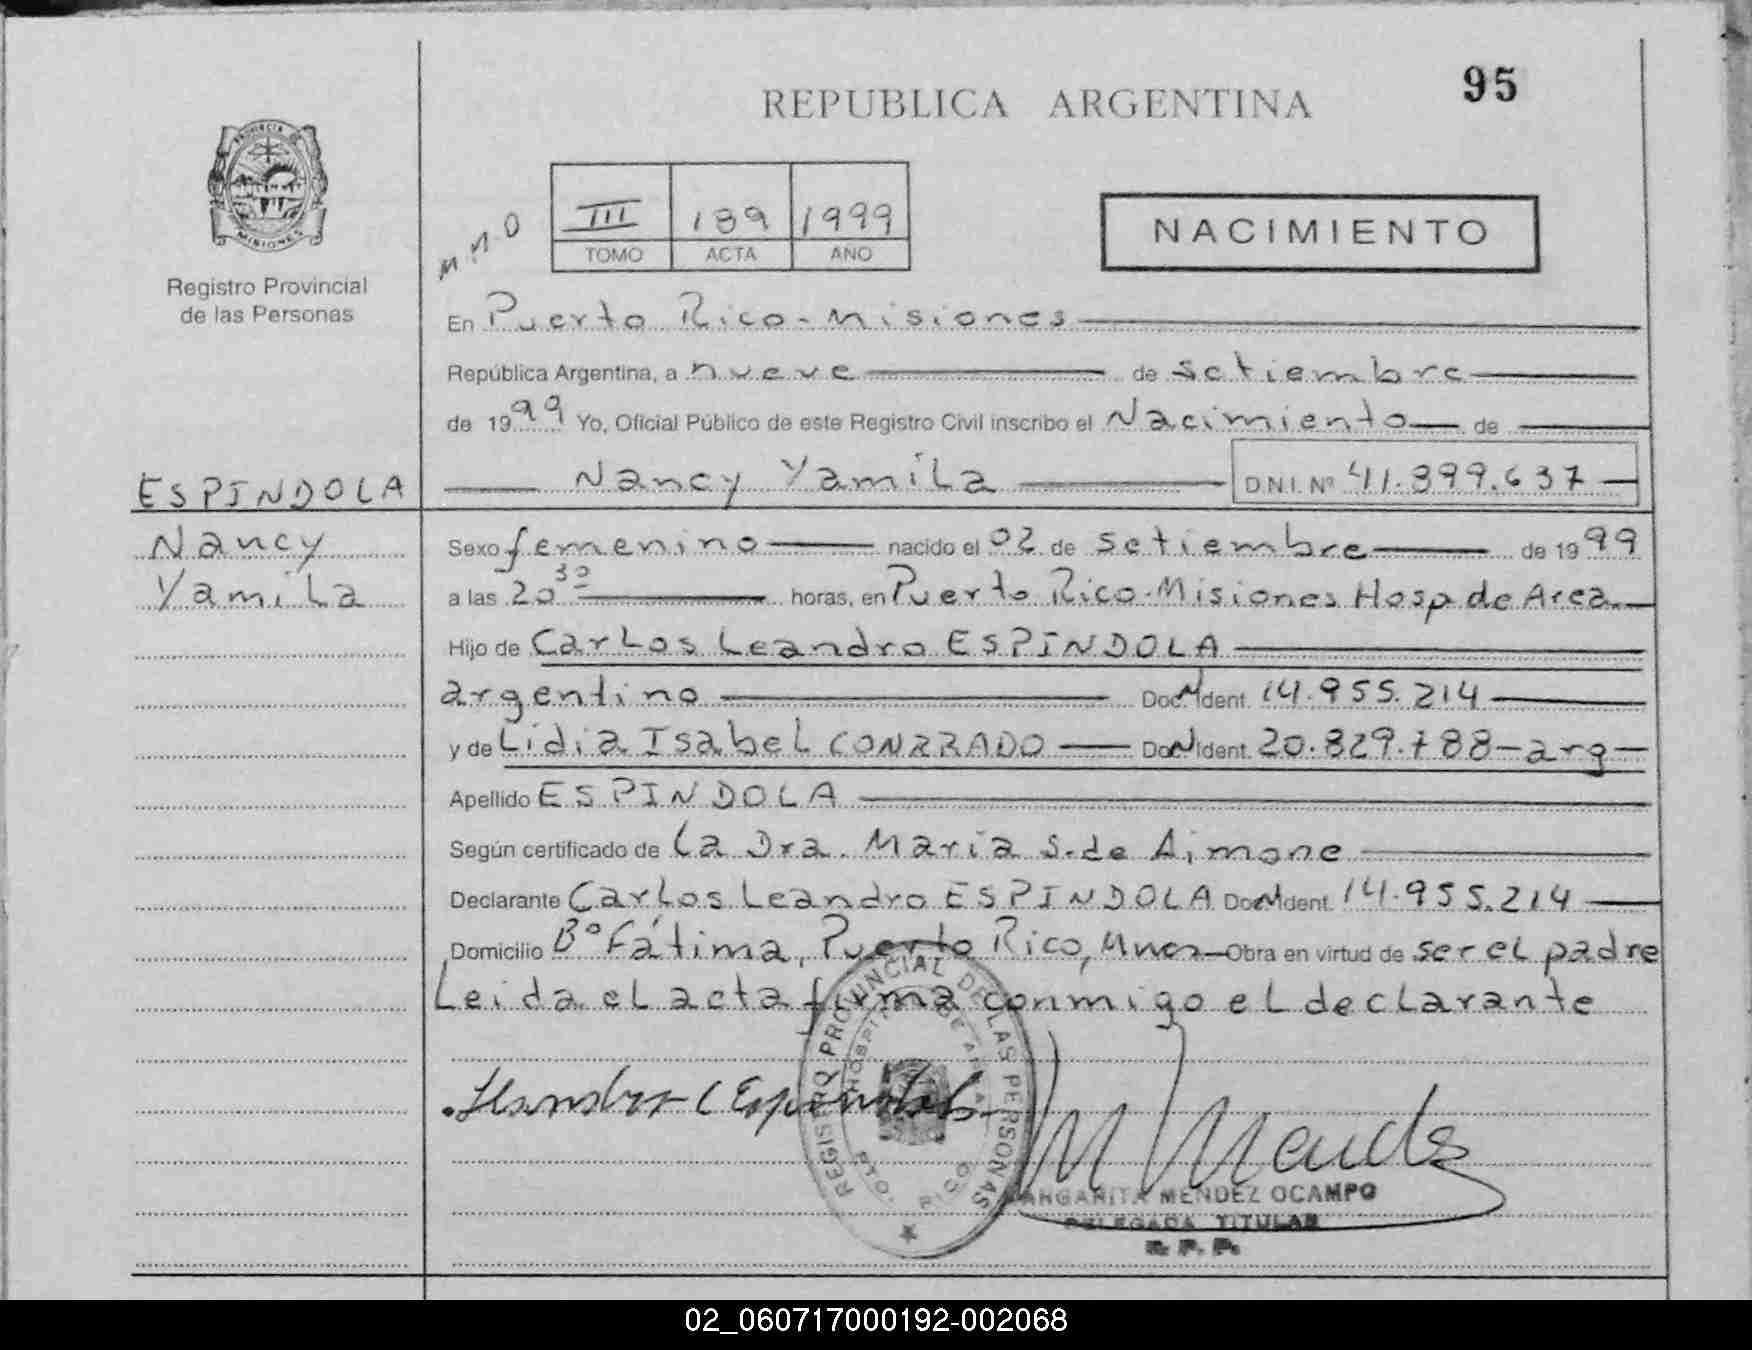 95
REPUBLICA ARGENTINA
PROVINCIA DE
MISIONES
Registro Provincial
de las Personas
M.N.O
III 189 1999
TOMO ACTA AÑO
NACIMIENTO
En Puerto Rico - Misiones
República Argentina, a nueve de setiembre
de 1999 Yo, Oficial Público de este Registro Civil inscribo el Nacimiento de
Nancy Yamila D.N.I. Nº 41.899.637
ESPINDOLA
Nancy
Yamila
Sexo femenino nacido el 02 de setiembre de 1999
a las 20 30 horas, en Puerto Rico - Misiones Hosp de Area
Hijo de Carlos Leandro ESPINDOLA
argentino Doc Ident. 14.955.214
y de Lidia Isabel CONRRADO Doc Ident. 20.829.788 - arg
Apellido ESPINDOLA
Según certificado de La Dra. María S. de Aimone
Declarante Carlos Leandro ESPINDOLA Doc Ident. 14.955.214
Domicilio Bº Fátima, Puerto Rico, Mnes Obra en virtud de ser el padre
Leida el acta firma conmigo el declarante
REGISTRO PROVINCIAL DE LAS PERSONAS
HOSPITAL DE AREA
PTO. RICO
MARGARITA MENDEZ OCAMPO
DELEGADA TITULAR
R. P. P.
02_060717000192-002068